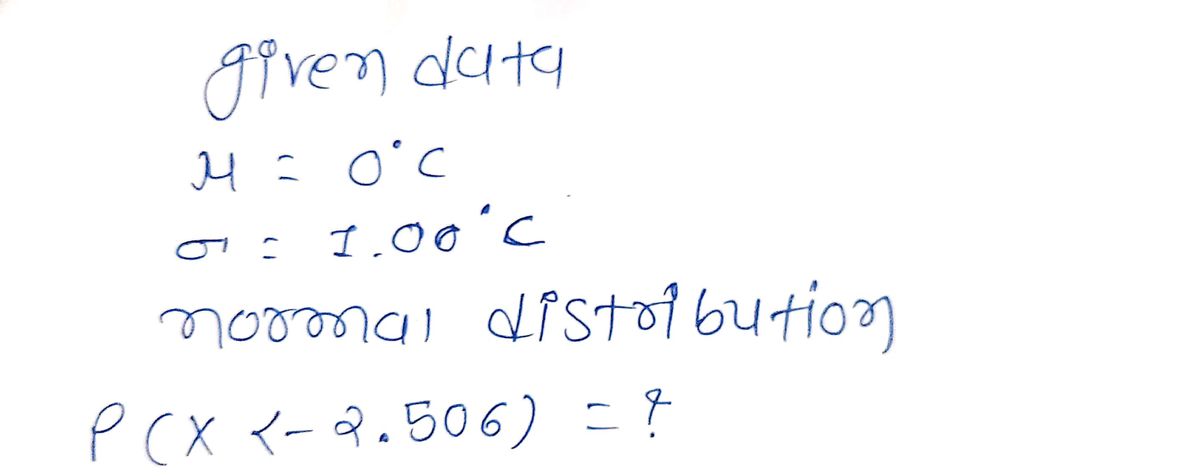 given data
μ = 0°C
σ = 1.00°C
normal distribution
P(X <-2.506) = ?